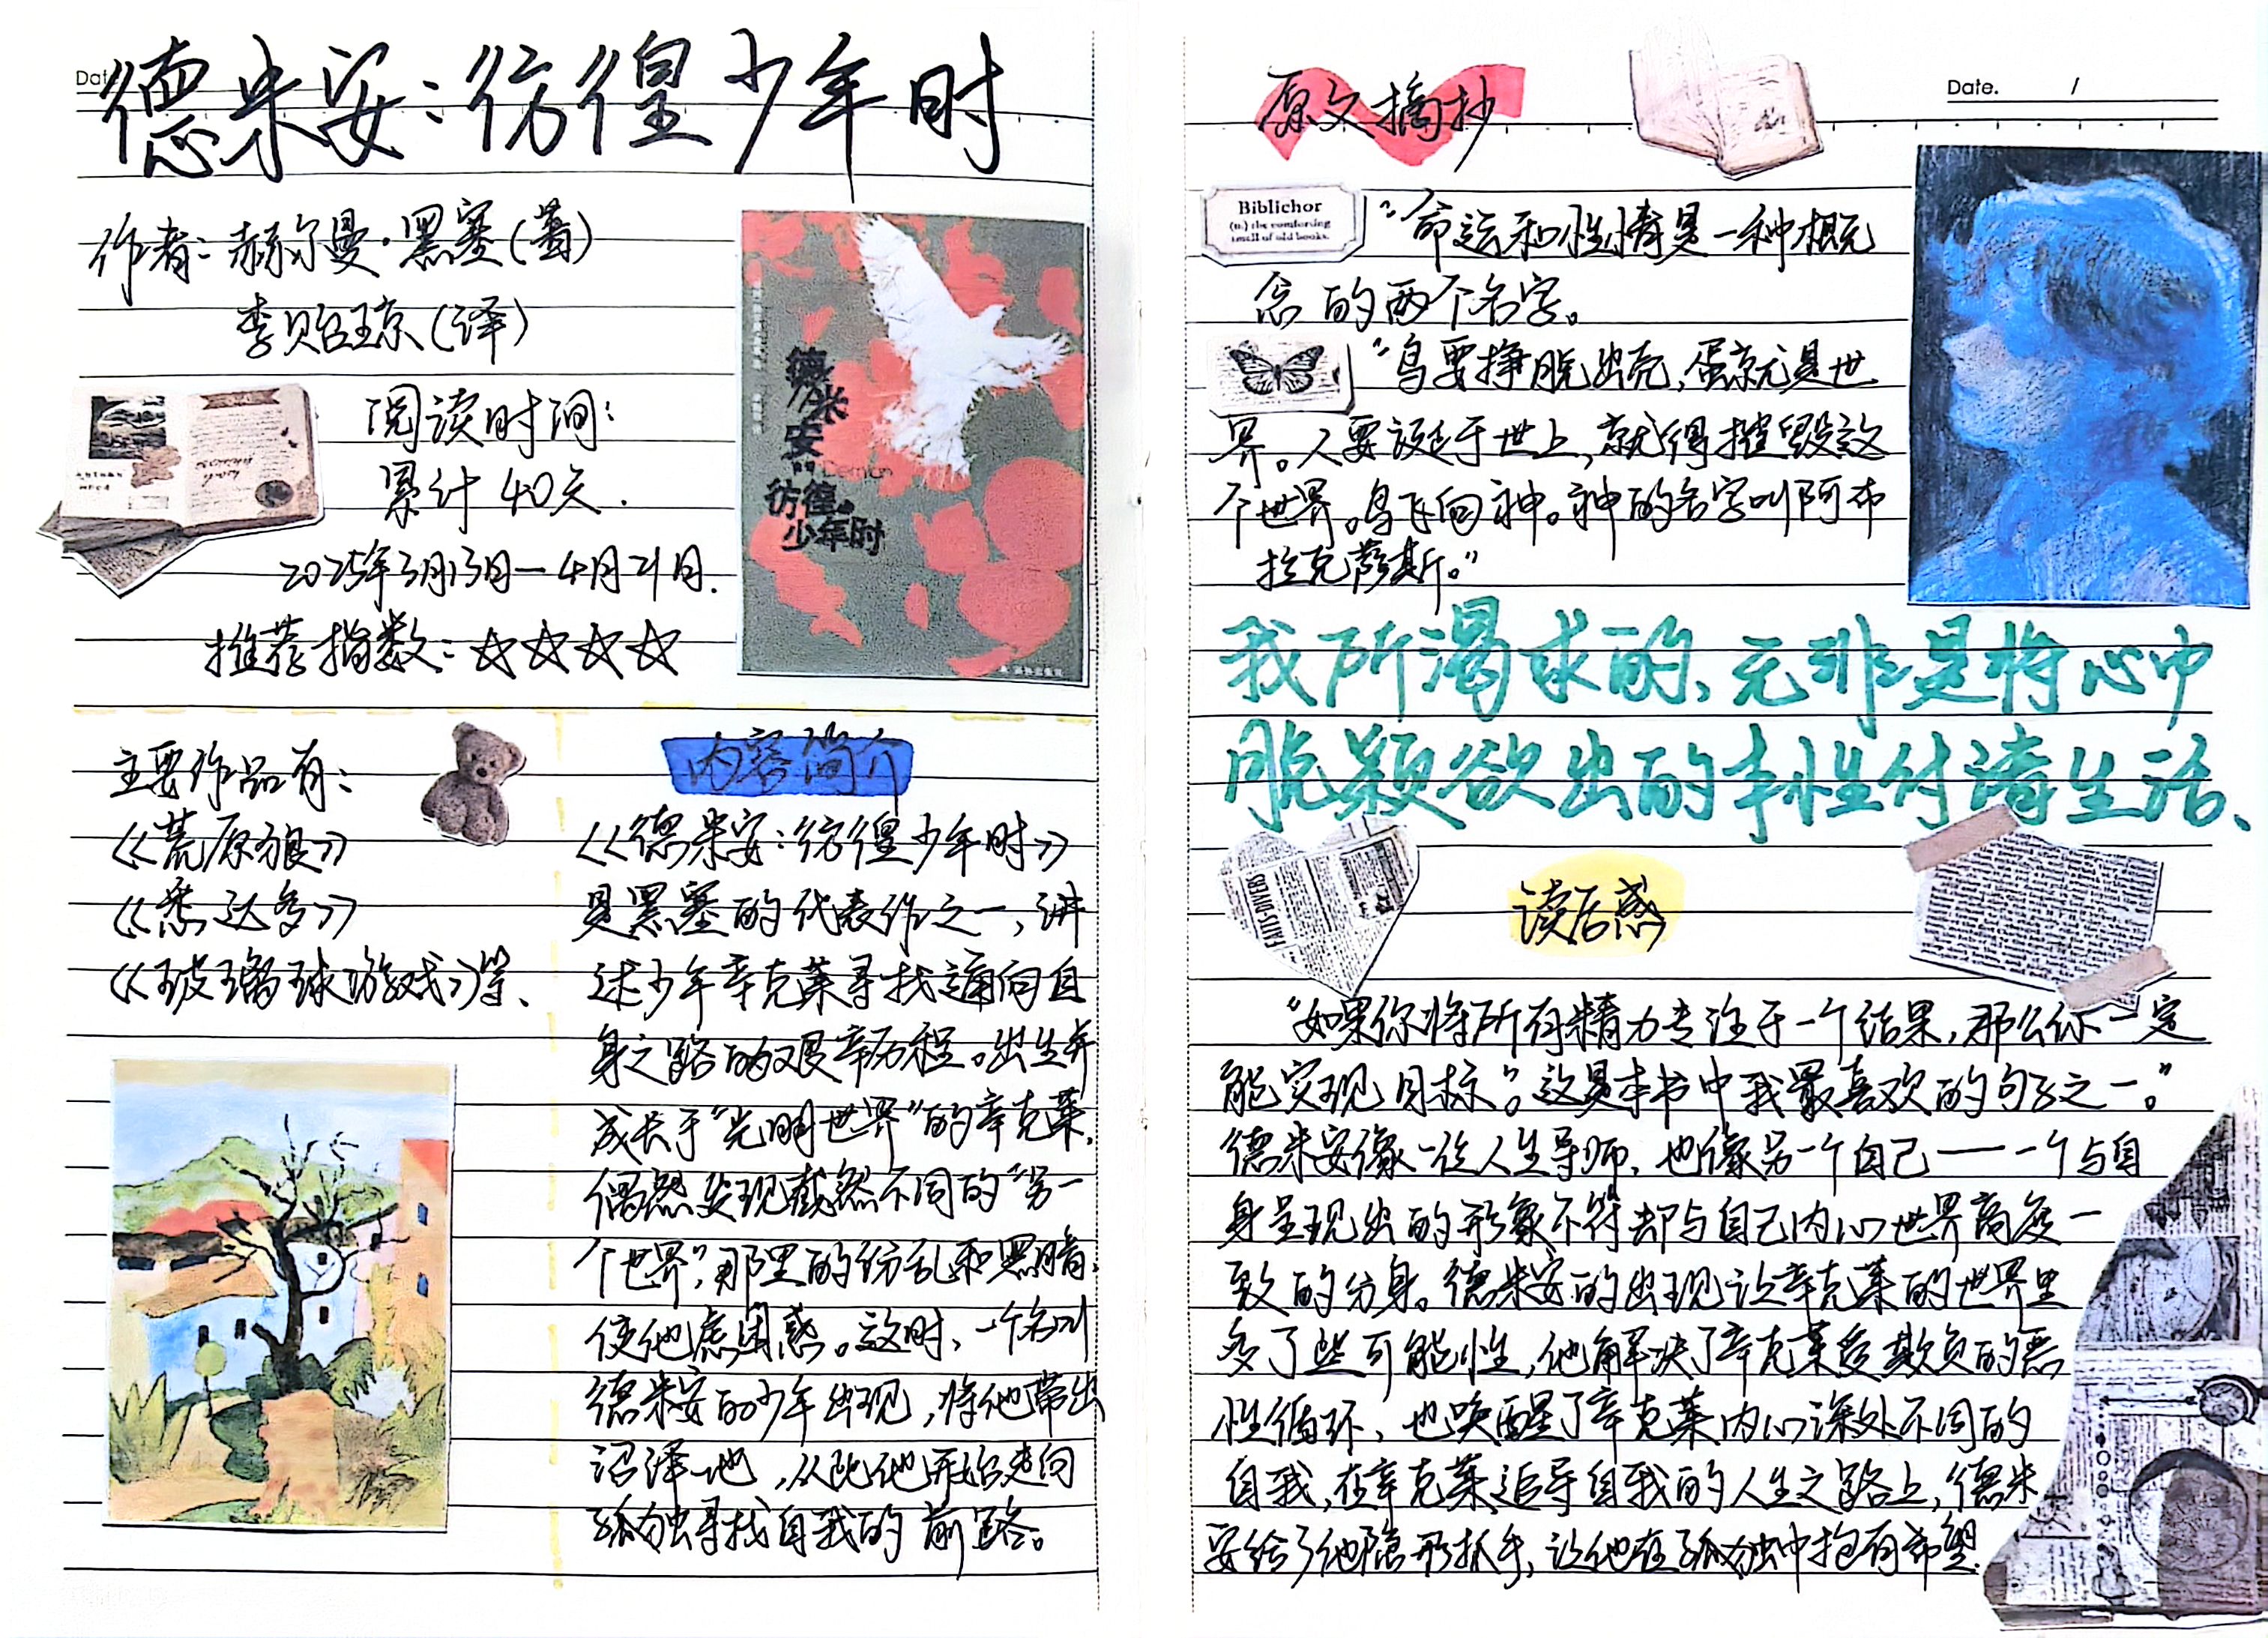 德米安：彷徨少年时
作者：赫尔曼·黑塞（著）
李贻琼（译）
阅读时间：
累计40天.
2025年3月13日—4月21日.
推荐指数：☆☆☆☆
德米安
Demian
彷徨
少年时
主要作品有：
《荒原狼》
《悉达多》
《玻璃球游戏》等、
内容简介
《德米安：彷徨少年时》
是黑塞的代表作之一，讲
述少年辛克莱寻找通向自
身之路的艰辛历程。出生并
成长于“光明世界”的辛克莱，
偶然发现截然不同的“另一
个世界”，那里的纷乱和黑暗，
使他焦虑困惑。这时，一个名叫
德米安的少年出现，将他带出
沼泽地，从此他开始走向
孤独寻找自我的前路。
原文摘抄
Date. /
Biblichor
(n.) the comforting
smell of old books.
“命运和性情是一种概
念的两个名字。
“鸟要挣脱出壳，蛋就是世
界。人要诞于世上，就得摧毁这
个世界。鸟飞向神。神的名字叫阿布
拉克萨斯。”
我所渴求的、无非是将心中
脱颖欲出的本性付诸生活、
FAITS DIVERS
读后感
“如果你将所有精力专注于一个结果，那么你一定
能实现目标”。这是本书中我最喜欢的句子之一。”
德米安像一位人生导师，也像另一个自己——一个与自
身呈现出的形象不符却与自己内心世界高度一
致的分身。德米安的出现让辛克莱的世界里
多了些可能性，他解决了辛克莱受欺负的恶
性循环，也唤醒了辛克莱内心深处不同的
自我，在辛克莱追寻自我的人生之路上，德米
安给了他隐形抓手，让他在孤独中抱有希望.